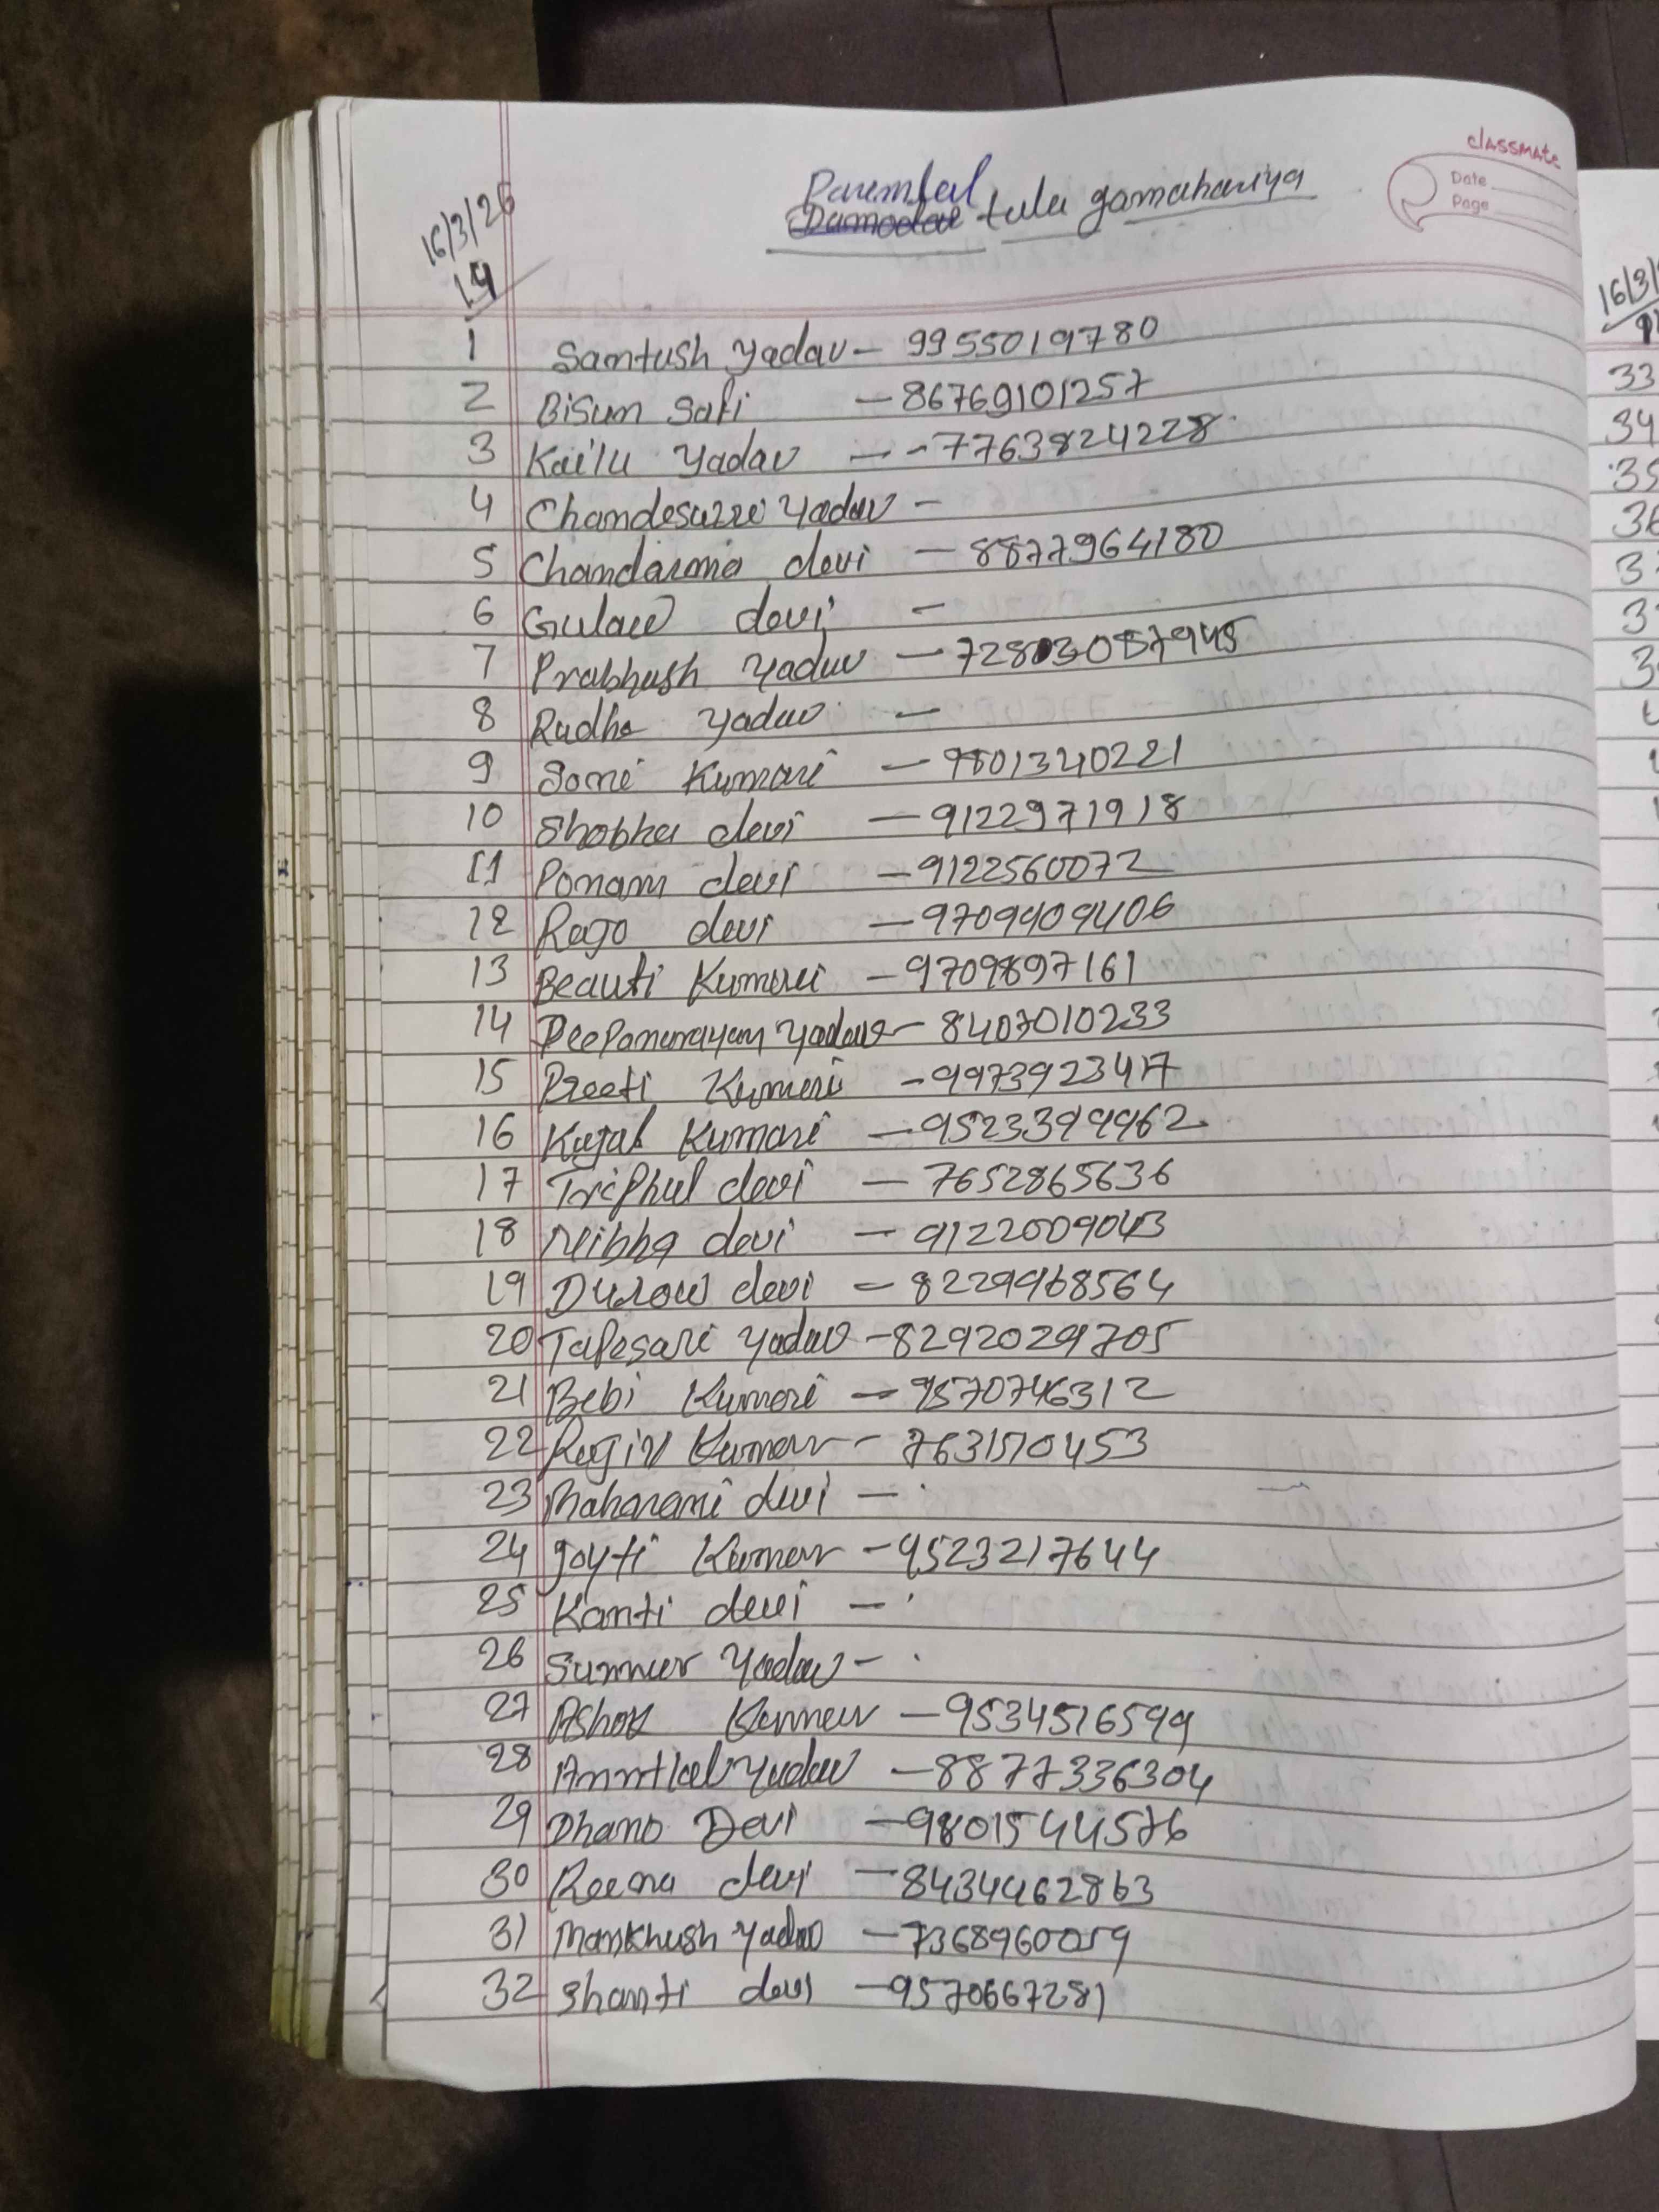 classmate
Date
Page
16/3/26
19
Paremlal
Damodar tula gamahariya
1 Samtush Yadav - 9955019780
2 Bisun Safi - 86769101257
3 Kailu Yadav - - 7763824228
4 Chandesurri Yadav -
5 Chandarma devi - 8877964180
6 Gulaw devi -
7 Prabhash Yadav - 72803057945
8 Radha Yadav -
9 Somi Kumari - 9801340221
10 Shobha devi - 9122971918
11 Ponam devi - 9122560072
12 Rajo devi - 9709409406
13 Beauti Kumari - 9709897161
14 Deepanarayan Yadav - 8407010233
15 Preeti Kumari - 9973923417
16 Kajal Kumari - 9523399962
17 Triphul devi - 7652865636
18 Nibha devi - 9122009043
19 Durow devi - 8229968564
20 Tapesari Yadav - 8292029705
21 Bebi Kumari - 9570746312
22 Rajiv Kumar - 7631570453
23 Maharani devi -
24 Joyti Kumar - 9523217644
25 Kanti devi -
26 Sumur Yadav -
27 Ashok Kumar - 9534516599
28 Amrtlal Yadav - 8877336304
29 Dhano Devi - 9801544576
30 Reena devi - 8434462863
31 Mankhush Yadav - 7368960059
32 Shanti devi - 9570667281
16/3/
33
34
35
36